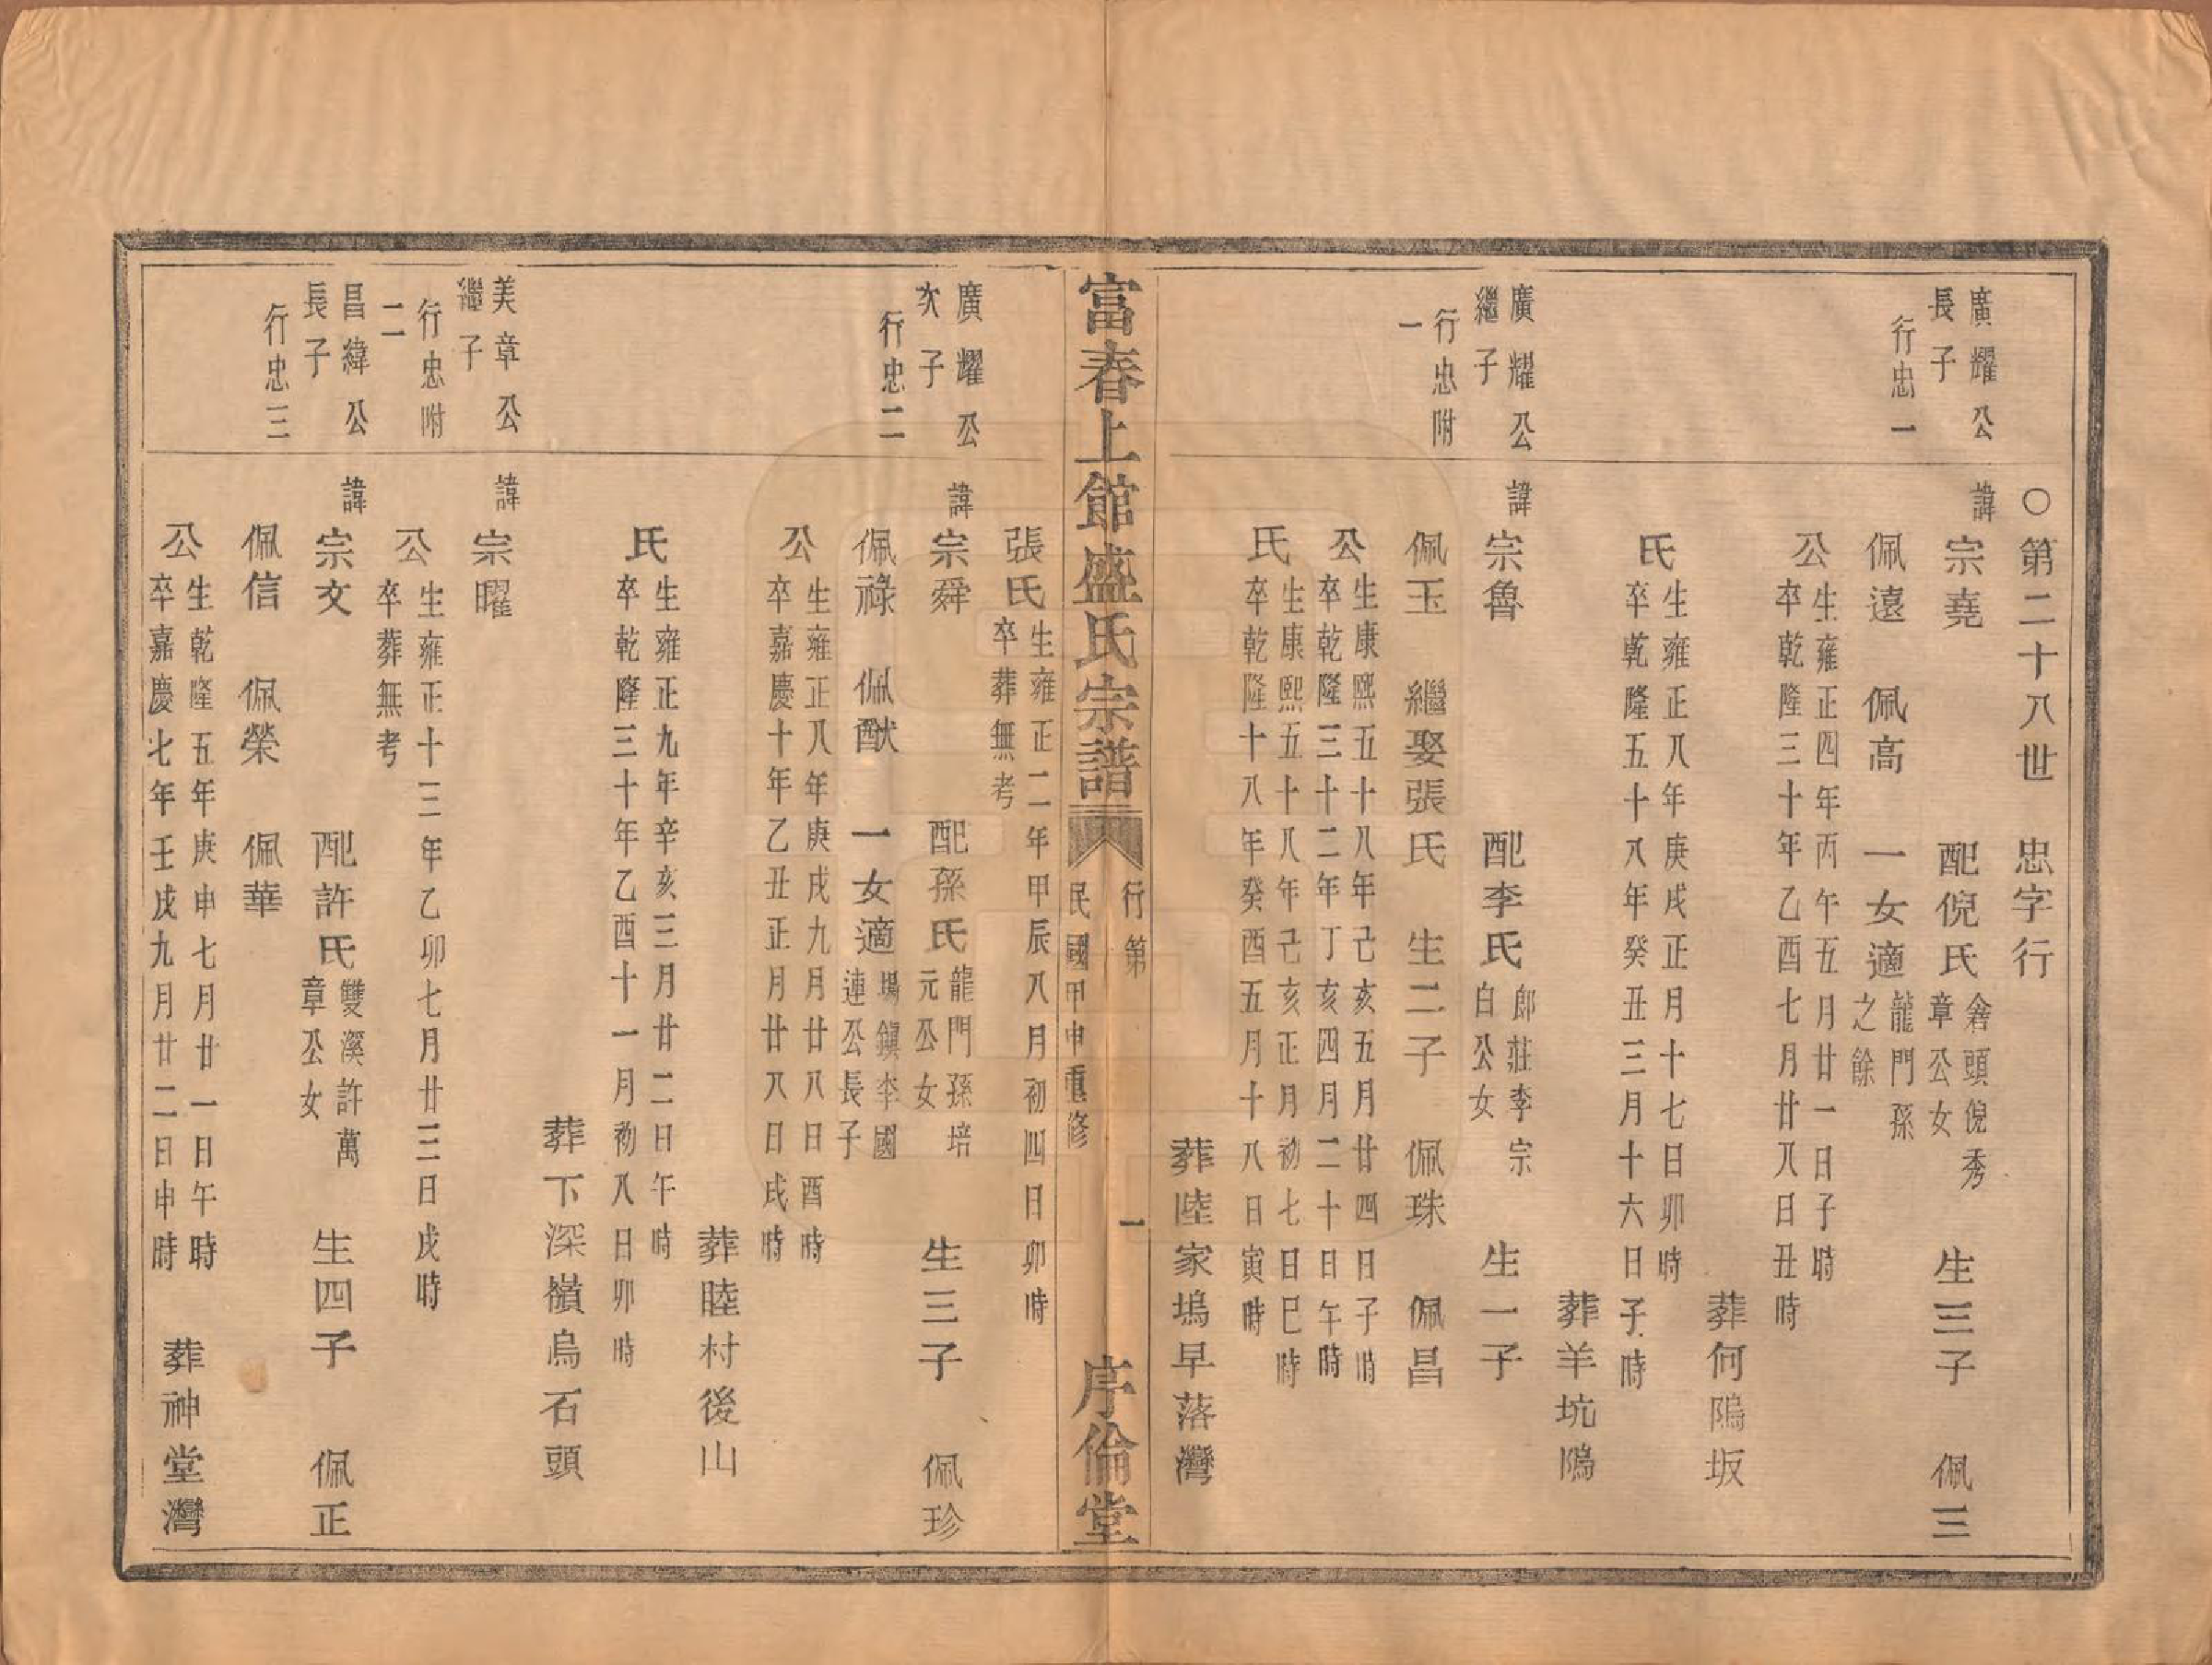 ○第二十八世　忠字行
廣耀公
長子
行忠一
諱
宗堯　配倪氏
畬頭倪秀
章公女
生三子　佩三
佩遠　佩高　一女適
龍門孫
之餘
公
生雍正四年丙午五月廿一日子時
卒乾隆三十年乙酉七月廿八日丑時
葬何隖坂
氏
生雍正八年庚戌正月十七日卯時
卒乾隆五十八年癸丑三月十六日子時
葬羊坑隖
廣耀公
繼子
行忠附
一
諱
宗魯　配李氏
郎莊李宗
白公女
生一子
佩玉　繼娶張氏　生二子　佩珠　佩昌
公
生康熙五十八年己亥五月廿四日子時
卒乾隆三十二年丁亥四月二十日午時
氏
生康熙五十八年己亥正月初七日巳時
卒乾隆十八年癸酉五月十八日寅時
葬陸家塢早落灣
富春上館盛氏宗譜
行第　一
民國甲申重修
序倫堂
張氏
生雍正二年甲辰八月初四日卯時
卒葬無考
廣耀公
次子
行忠二
諱
宗舜　配孫氏
龍門孫培
元公女
生三子　佩珍
佩祿　佩猷　一女適
場鎮李國
連公長子
公
生雍正八年庚戌九月廿八日酉時
卒嘉慶十年乙丑正月廿八日戌時
葬睦村後山
氏
生雍正九年辛亥三月廿二日午時
卒乾隆三十年乙酉十一月初八日卯時
葬下深嶺烏石頭
美章公
繼子
行忠附
二
諱
宗曜
公
生雍正十三年乙卯七月廿三日戌時
卒葬無考
昌緯公
長子
行忠三
諱
宗文　配許氏
雙溪許萬
章公女
生四子　佩正
佩信　佩榮　佩華
公
生乾隆五年庚申七月廿一日午時
卒嘉慶七年壬戌九月廿二日申時
葬神堂灣